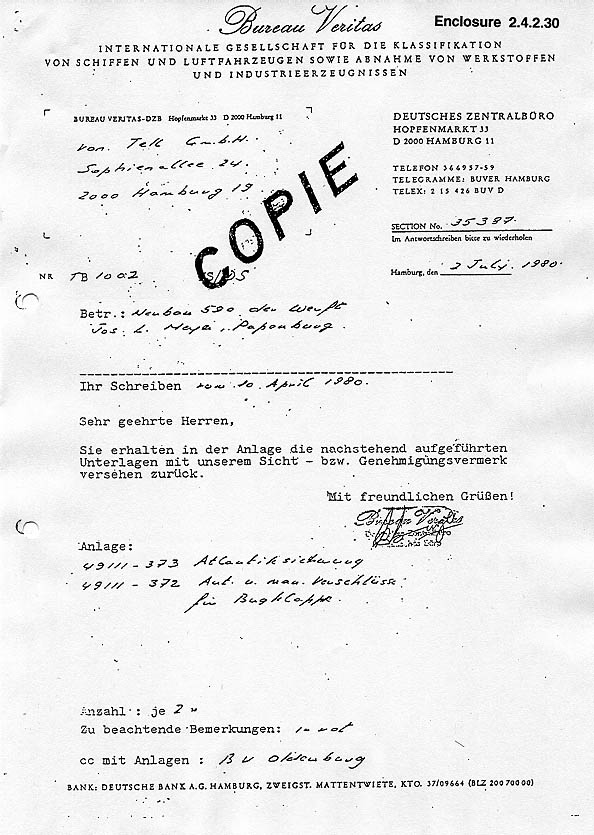 Bureau Veritas
Enclosure 2.4.2.30
INTERNATIONALE GESELLSCHAFT FÜR DIE KLASSIFIKATION
VON SCHIFFEN UND LUFTFAHRZEUGEN SOWIE ABNAHME VON WERKSTOFFEN
UND INDUSTRIEERZEUGNISSEN
BUREAU VERITAS-DZB Hopfenmarkt 33 D 2000 Hamburg 11
von Tell G.m.b.H.
Sophienallee 24.
2000 Hamburg 19.
DEUTSCHES ZENTRALBÜRO
HOPFENMARKT 33
D 2000 HAMBURG 11
TELEFON 366957-59
TELEGRAMME: BUVER HAMBURG
TELEX: 2 15 426 BUV D
COPIE
SECTION No. 35397.
Im Antwortschreiben bitte zu wiederholen
NR TB 1002 /DS
Hamburg, den 2 July. 1980.
Betr.: Neubau 590 der Werft
Jos. L. Meyer, Papenburg.
Ihr Schreiben vom 10. April 1980.
Sehr geehrte Herren,
Sie erhalten in der Anlage die nachstehend aufgeführten
Unterlagen mit unserem Sicht - bzw. Genehmigungsvermerk
versehen zurück.
Mit freundlichen Grüßen!
Bureau Veritas
Anlage:
49111 - 373 Atlantiksicherung
49111 - 372 Aut. u. man. Verschlüsse
für Bugklappe.
Anzahl : je 2 x
Zu beachtende Bemerkungen: in rot
cc mit Anlagen : BV Oldenburg
BANK: DEUTSCHE BANK A.G. HAMBURG, ZWEIGST. MATTENTWIETE, KTO. 37/09664 (BLZ 200 700 00)